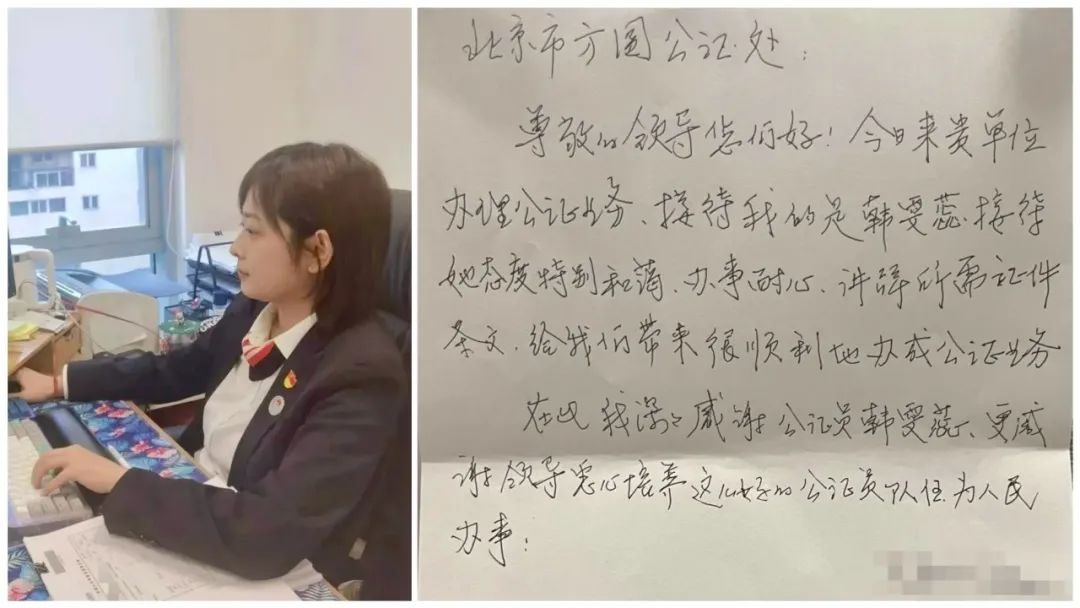 北京市方圆公证处：
尊敬的领导您们好！今日来贵单位
办理公证业务、接待我的是韩雯蕊、接待
她态度特别和蔼、办事耐心、讲解所需证件
条文、给我们带来很顺利地办成公证业务
在此我深深感谢公证员韩雯蕊、更感
谢领导悉心培养这么好的公证员队伍为人民
办事：